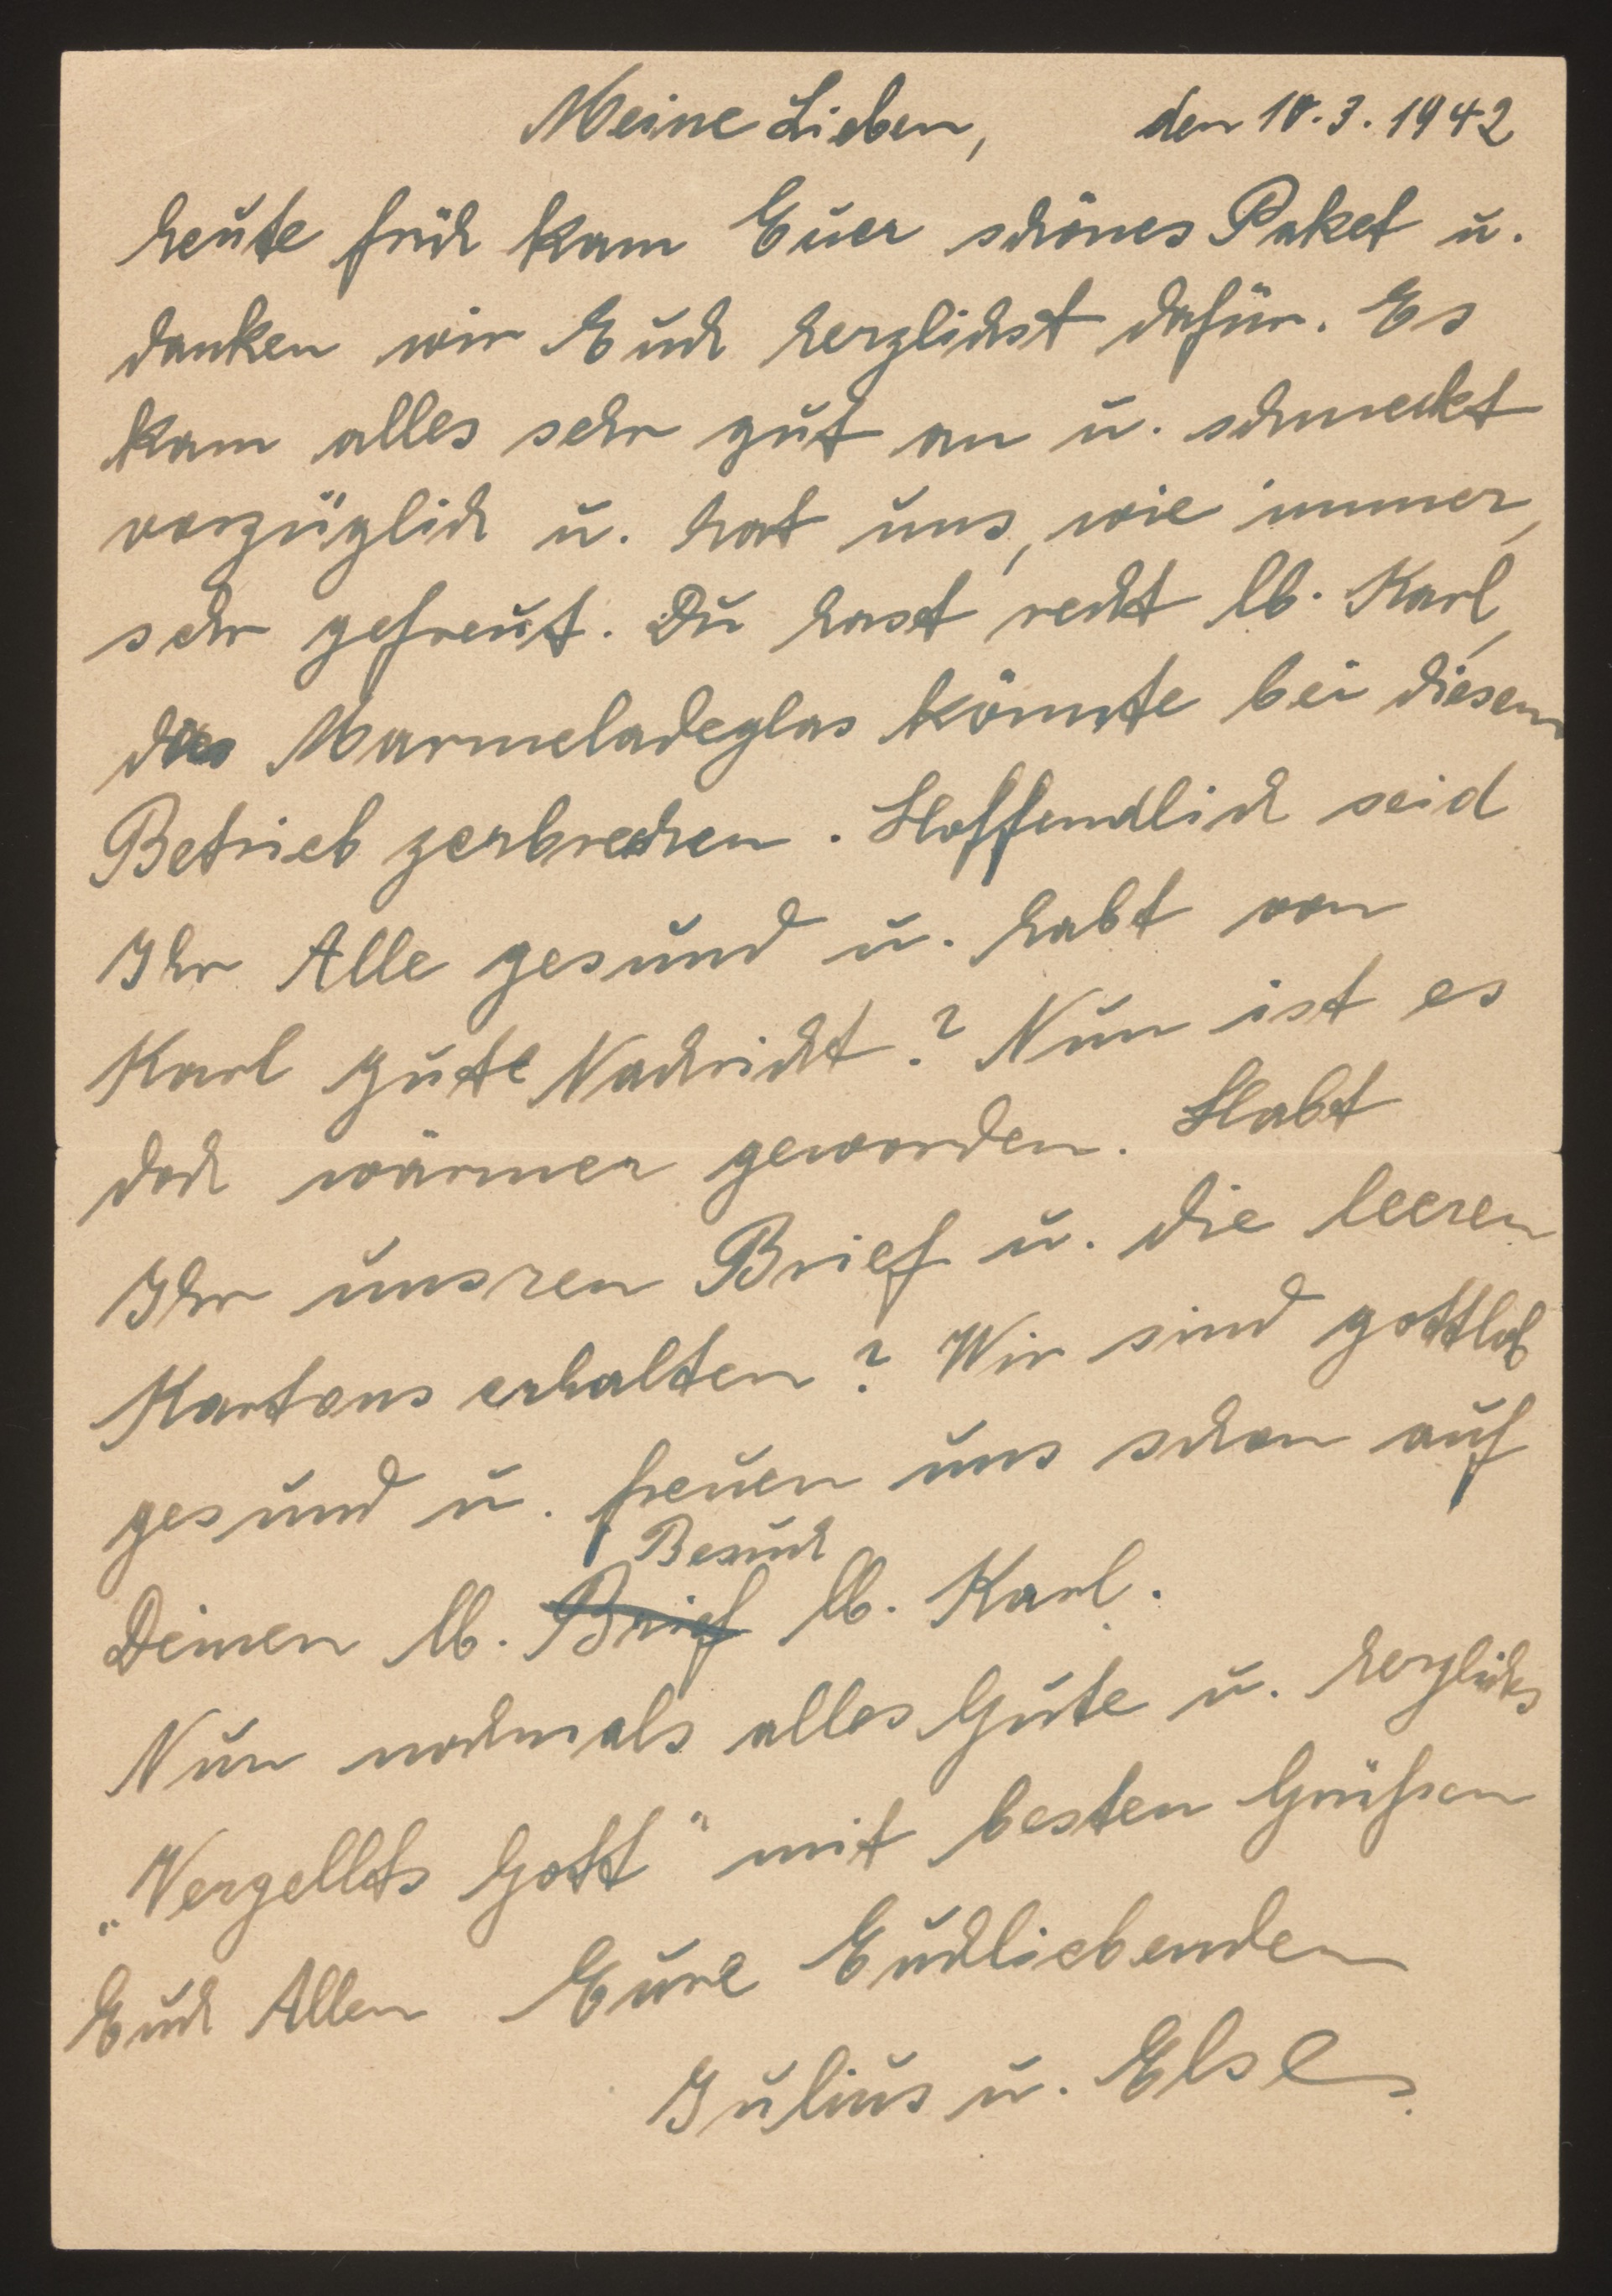 Meine Lieben, den 18.3.1942
heute früh kam Euer schönes Paket u.
danken wir Euch herzlichst dafür. Es
kam alles sehr gut an u. schmeckt
vorzüglich u. hat uns, wie immer,
sehr gefreut. Du hast recht lb. Karl,
das Marmeladeglas könnte bei diesem
Betrieb zerbrechen. Hoffendlich seid
Ihr Alle gesund u. habt von
Karl gute Nachricht? Nun ist es
doch wärmer geworden. Habt
Ihr unsren Brief u. die leeren
Kartons erhalten? Wir sind gottlob
gesund u. freuen uns schon auf
Besuch
Deinen lb. Brief lb. Karl.
Nun nochmals alles Gute u. herzliches
„Vergellts Gott" mit besten Grüßen
Euch Allen Eure Euchliebenden
Julius u. Else.